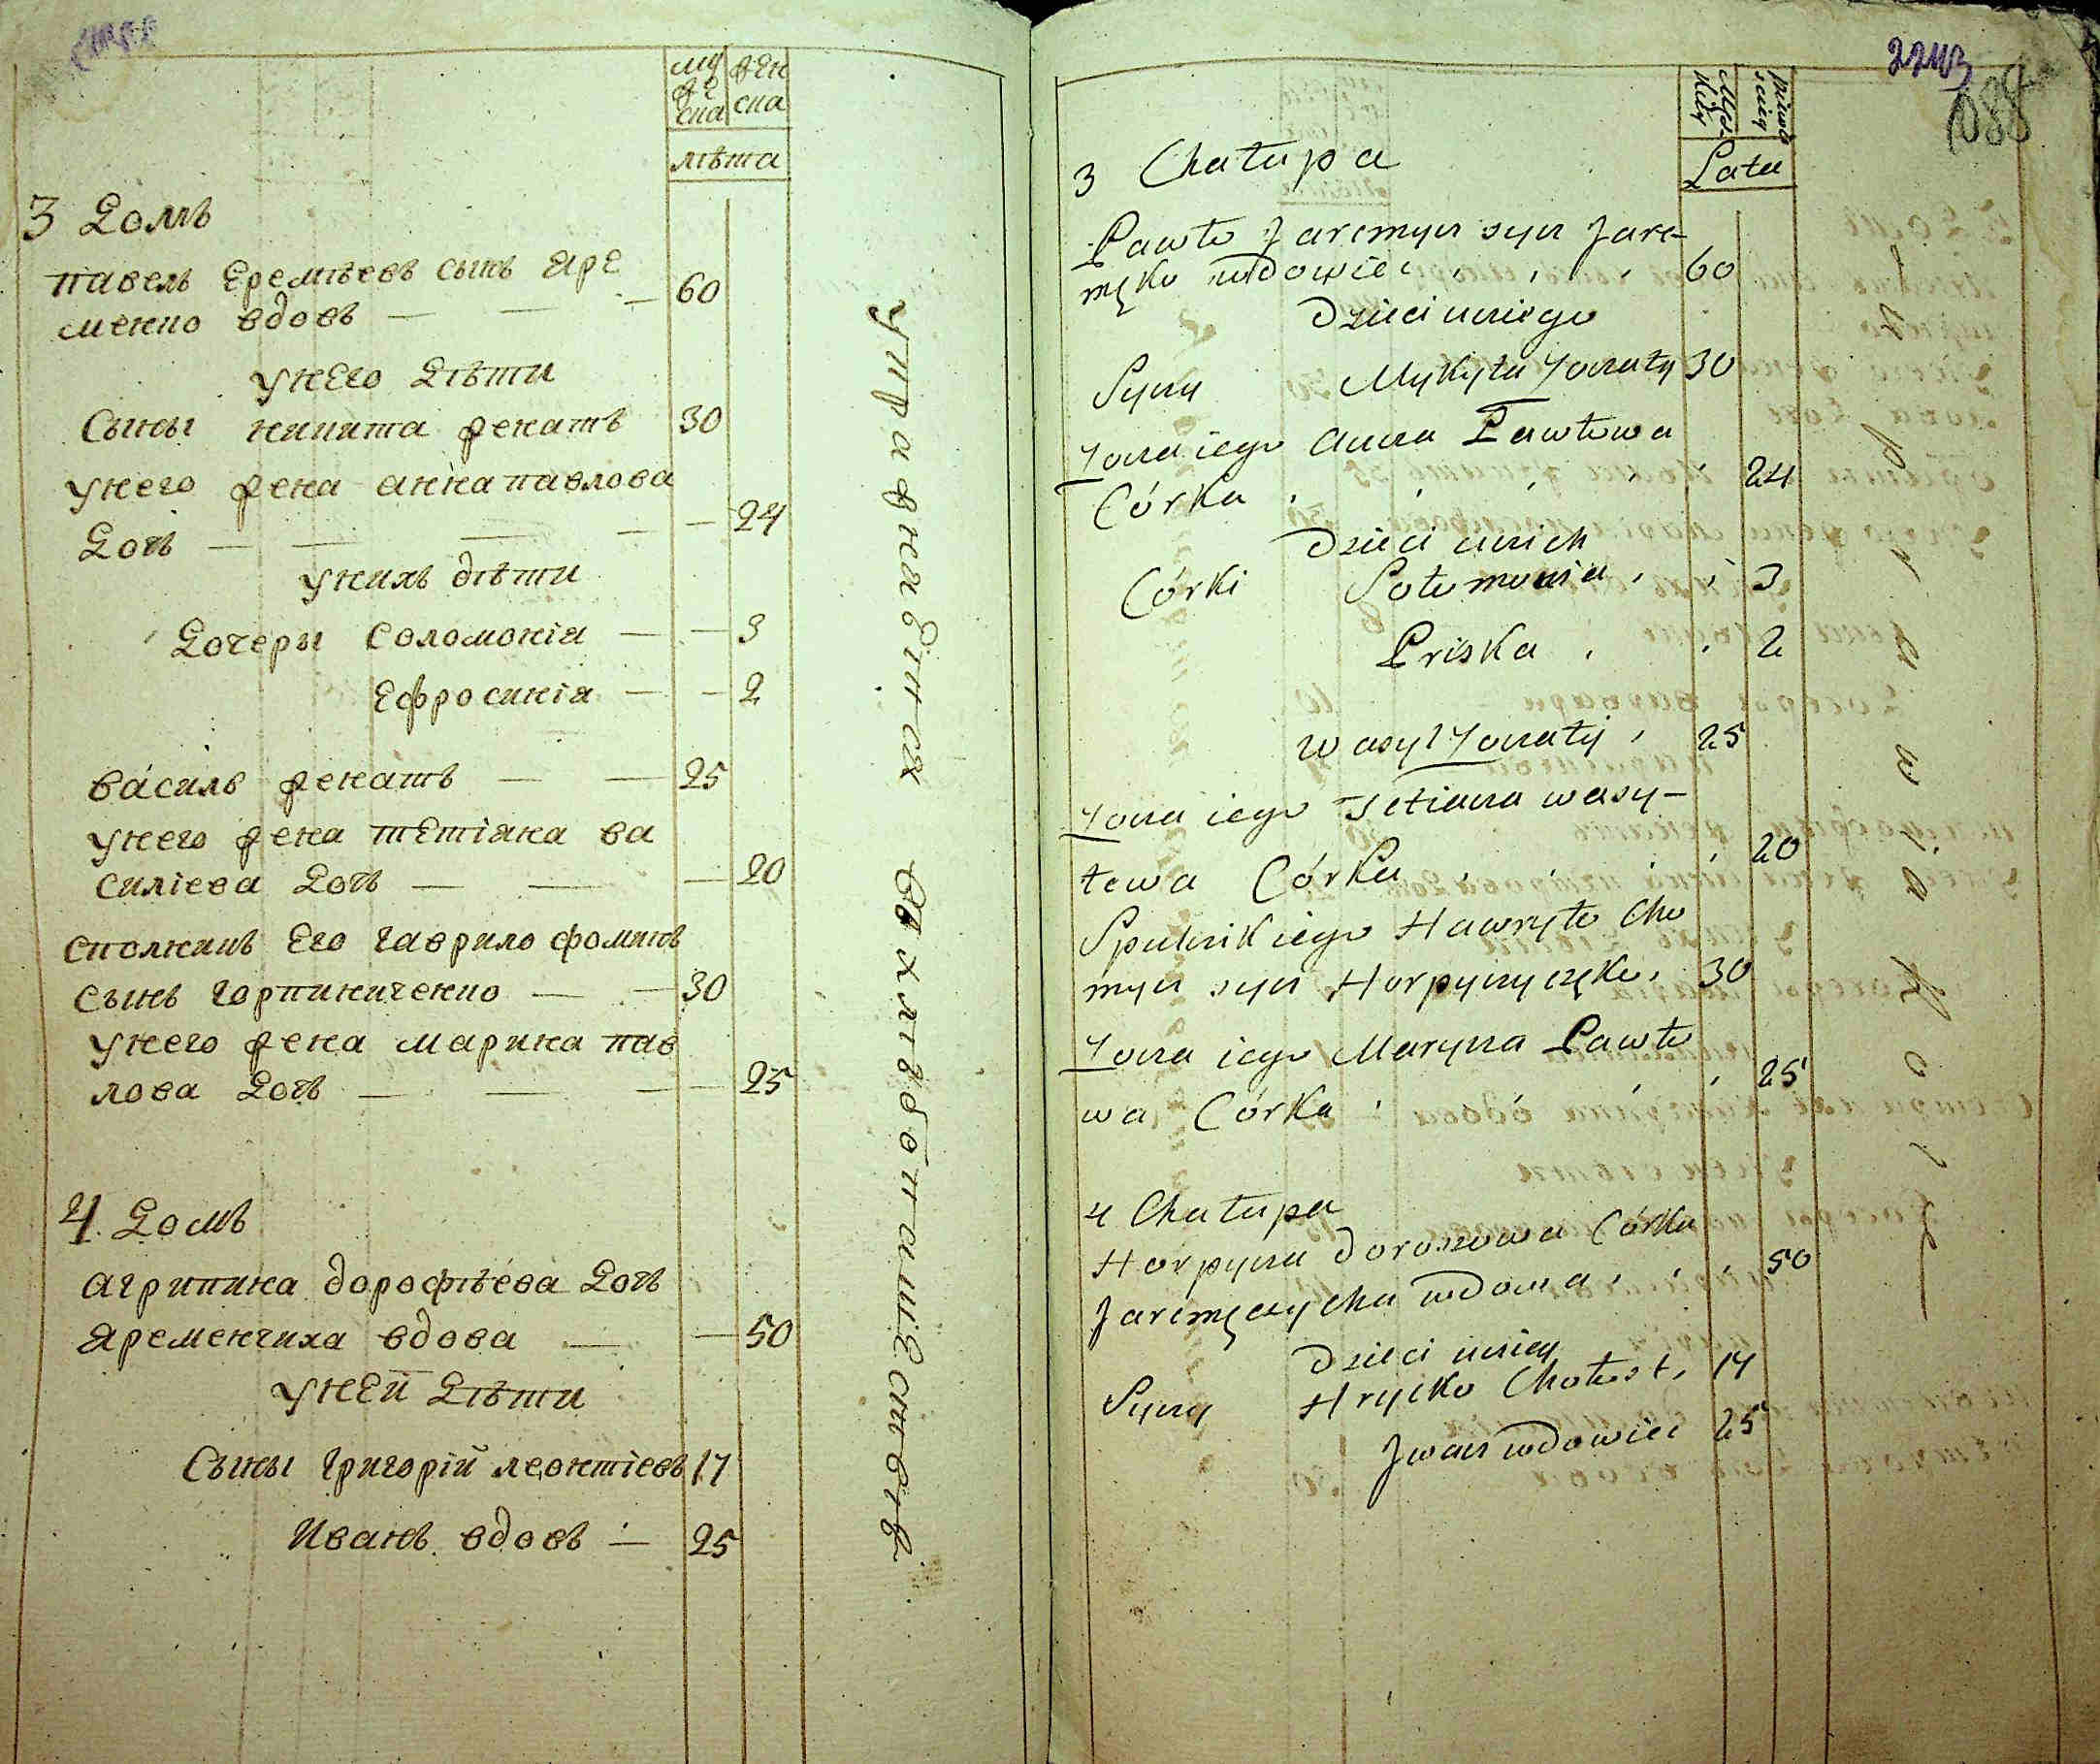 муже
ска
жен
ска
лѣта
3 Домъ
павелъ Еремѣевъ сынъ яре
менко вдовъ — — — 60
унего Дѣти
Сыны никита женатъ 30
унего жена анна павлова
Дочь — — — — 24
унихъ дѣти
Дочеры Соломонія — — 3
Ефросинія — — 2
василь женатъ — — 25
унего жена тетіяна ва
силіева Дочь — — — 20
сполникъ Его гаврило фоминъ
сынъ горпиниченко — — 30
унего жена марина пав
лова Дочь — — — 25
4 Домъ
агрипина дорофѣева Дочь
яременчиха вдова — — 50
уней Дѣти
Сыны григорій леонтіевъ 17
Иванъ вдовъ — 25
упражняЕтся вхлѣбопашЕствѣ
2243
1088
Lata
3 Chałupa
Pawło Jaremyn syn Jare-
męko wdowiec 60
Dzieci uniego
Syny Mykyta Żonaty 30
Żona iego Anna Pawłowa
Córka 24
Dzieci unich
Córki Sołomonia 3
Priska 2
Wasyl Żonaty 25
Żona iego Tetiana wasy-
lewa Córka 20
Spulnik iego Hawryło Cho
myn syn Horpynyczęko 30
Żona iego Maryna Pawło
wa Córka 25
4 Chałupa
Horpyna Doroszowa Córka
Jaremęczycha wdowa 50
Dzieci uniey
Syny Hrycko Chołost 17
Jwan wdowiec 25